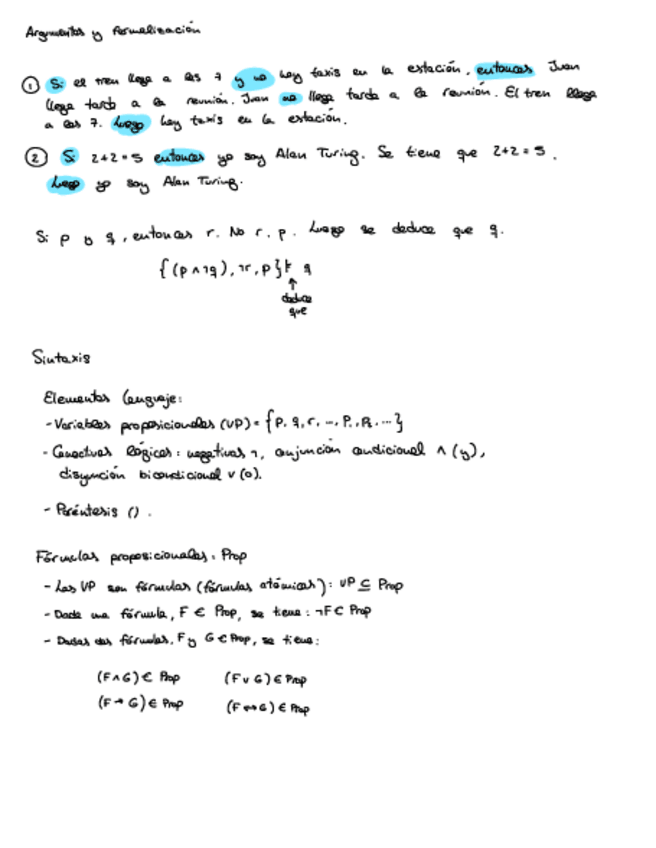 Argumentos y formalización
① Si el tren llega a las 7 y no hay taxis en la estación, entonces Juan
llega tarde a la reunión. Juan no llega tarde a la reunión. El tren llega
a las 7. Luego hay taxis en la estación.
② Si 2+2=5 entonces yo soy Alan Turing. Se tiene que 2+2=5.
Luego yo soy Alan Turing.
Si p y q, entonces r. No r. p. Luego se deduce que q.
{(p ∧ ¬q), ¬r, p} ⊧ q
↑
deduce
que
Sintaxis
Elementos lenguaje:
- Variables proposicionales (VP) = {p, q, r, ..., P₁, P₂, ...}
- Conectivas lógicas: negativas ¬, conjunción condicional ∧ (y),
disyunción bicondicional ∨ (o).
- Paréntesis ().
Fórmulas proposicionales: Prop
- Las VP son fórmulas (fórmulas atómicas): VP ⊆ Prop
- Dada una fórmula, F ∈ Prop, se tiene: ¬F ∈ Prop
- Dadas dos fórmulas, F y G ∈ Prop, se tiene:
(F ∧ G) ∈ Prop (F ∨ G) ∈ Prop
(F → G) ∈ Prop (F ↔ G) ∈ Prop